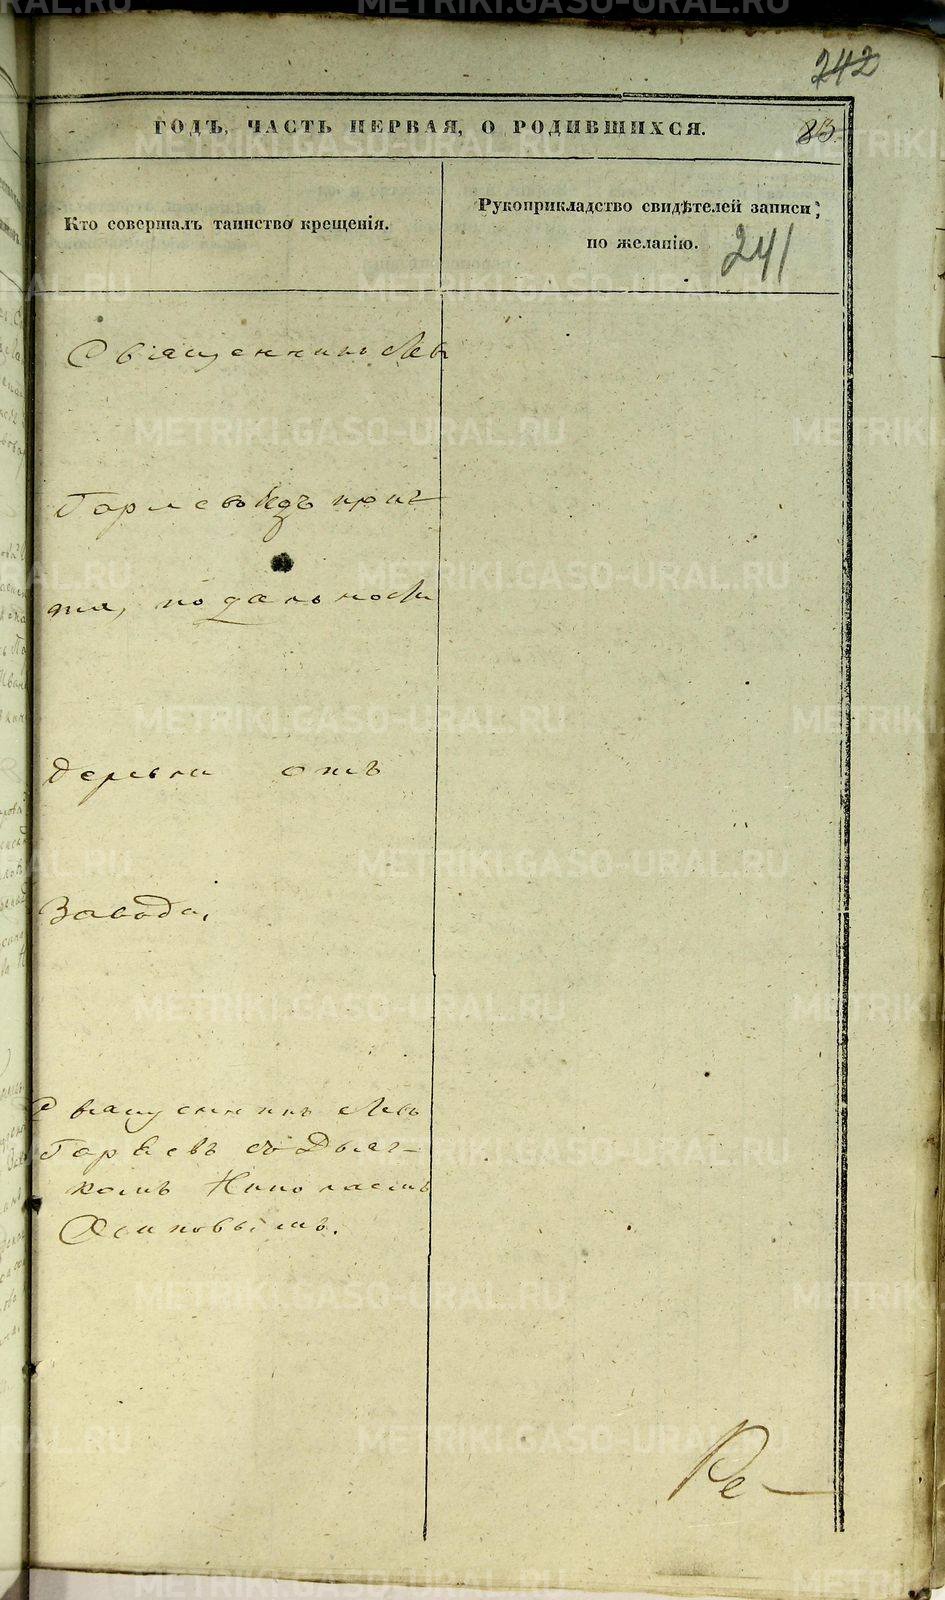 242
ГОДЪ, ЧАСТЬ ПЕРВАЯ, О РОДИВШИХСЯ.
83.
Кто совершалъ таинство крещенія.
Рукоприкладство свидѣтелей записи,
по желанію.
241
Священникъ Левъ
Гаряевъ безъ прич
та, по дальности
Деревни отъ
Завода,
Священникъ Левъ
Гаряевъ съ Дьяч-
комъ Николаемъ
Осиповымъ.
Ре-
METRIKI.GASO-URAL.RU